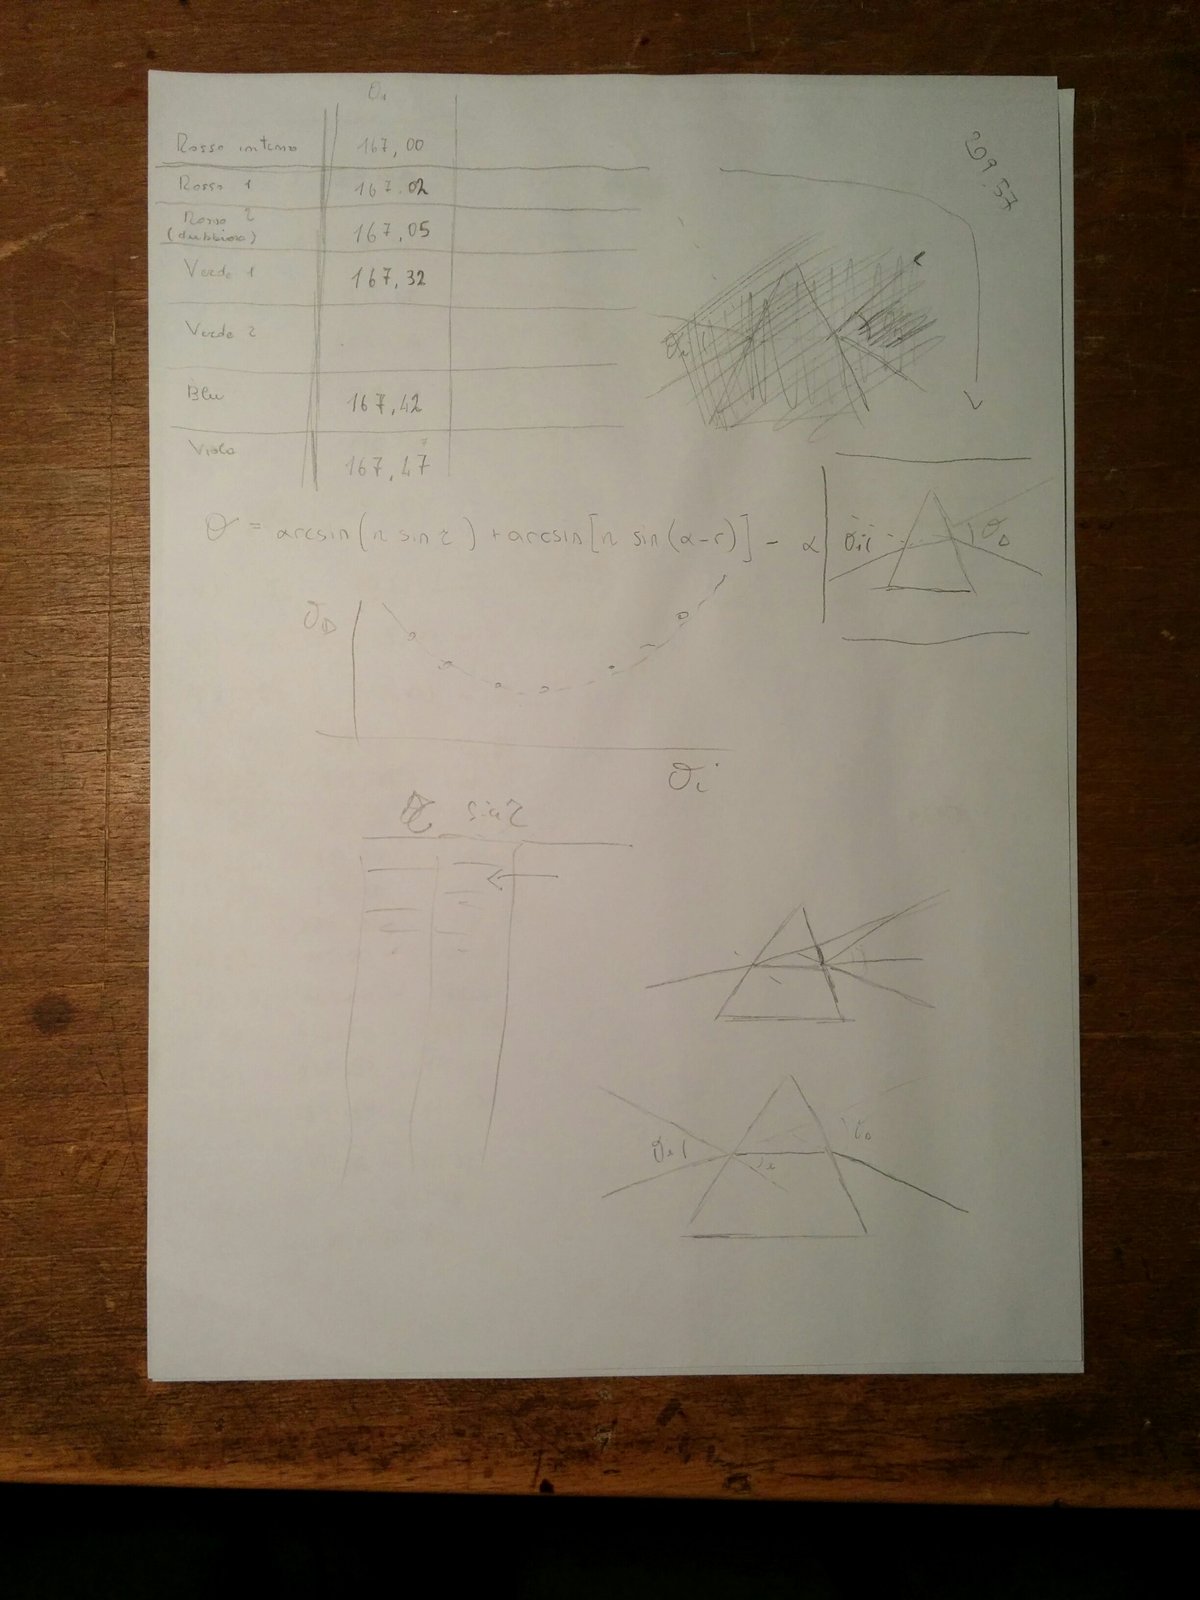 θ₁
Rosso intenso 167,00
Rosso 1 167.02
Rosso 2
(dubbioso) 167,05
Verde 1 167,32
Verde 2
Blu 167,42
Viola 167,47
7
θ = arcsin(n sin r) + arcsin[n sin(α-r)] - α
θi
θD
θD
θi
sin r
θi